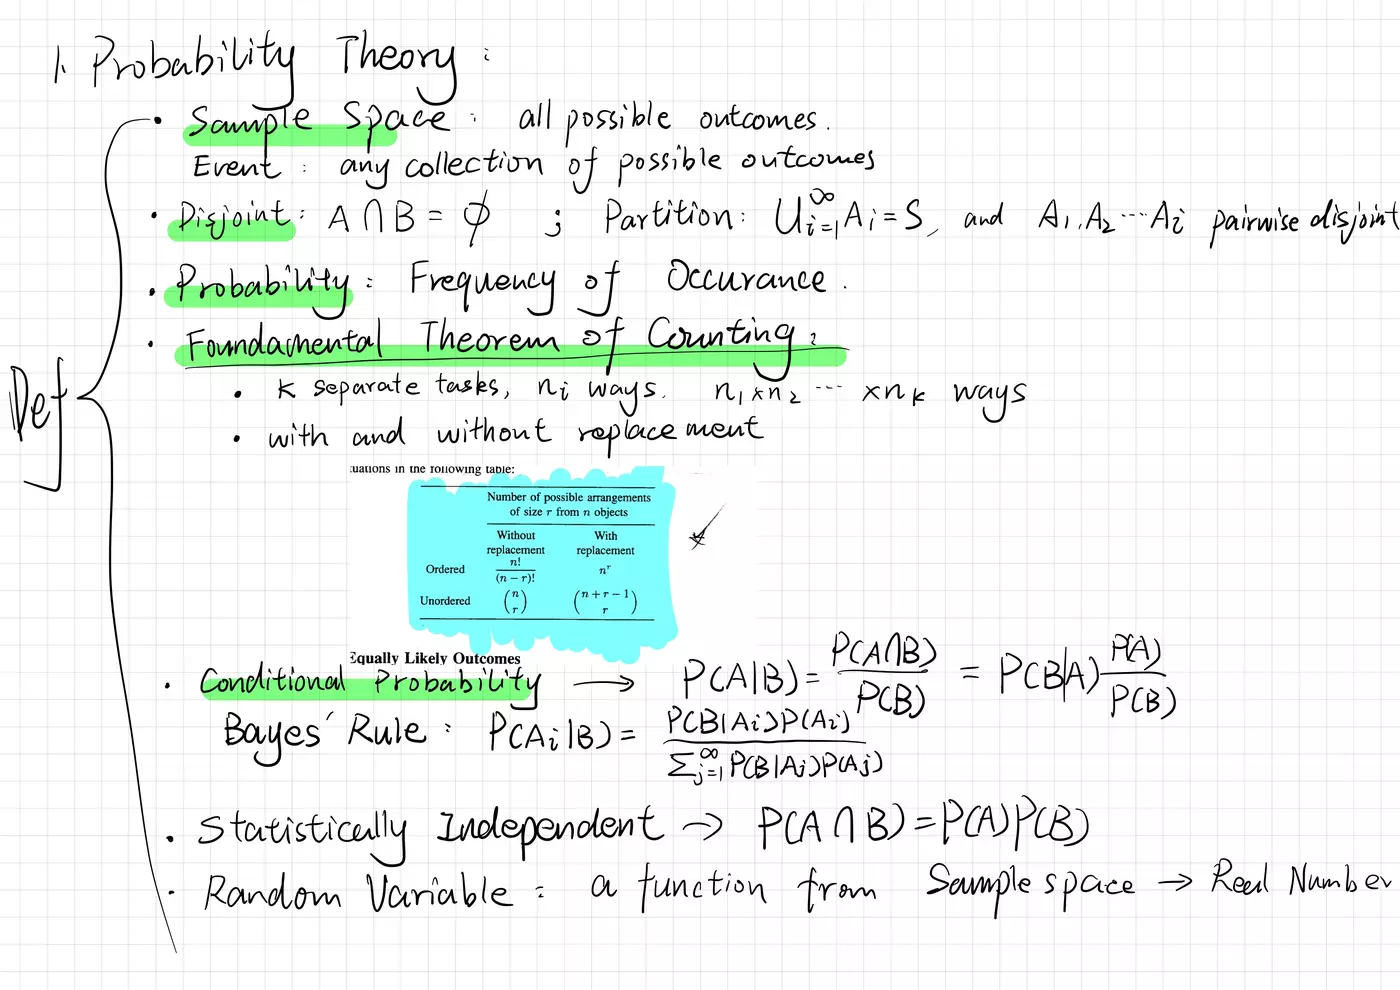 1. Probability Theory:
• Sample Space: all possible outcomes.
Event: any collection of possible outcomes
• Disjoint: A∩B = ∅ ; Partition: ∪_{i=1}^{∞} A_i = S, and A_1, A_2 ⋯ A_i pairwise disjoint
• Probability: Frequency of Occurance.
• Foundamental Theorem of Counting:
Def
• k separate tasks, n_i ways. n_1×n_2 ⋯ ×n_k ways
• with and without replacement
uations in the following table:
Number of possible arrangements
of size r from n objects
Without replacement With replacement
Ordered n!/(n − r)! n^r
Unordered (n r) (n + r − 1 r)
Equally Likely Outcomes
• Conditional Probability → P(A|B) = P(A∩B)/P(B) = P(B|A) P(A)/P(B)
Bayes' Rule: P(A_i|B) = P(B|A_i)P(A_i) / Σ_{j=1}^{∞} P(B|A_j)P(A_j)
• Statistically Independent → P(A∩B) = P(A)P(B)
• Random Variable: a function from Sample space → Real Number